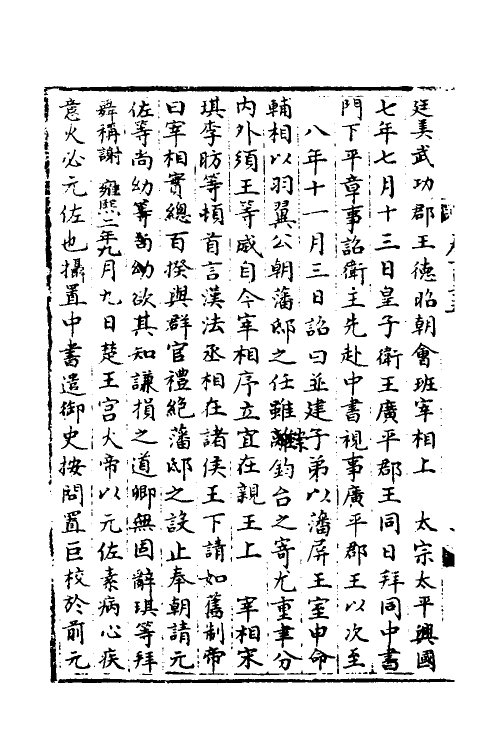 廷美武功郡王德昭朝會班宰相上　太宗太平興國
七年七月十三日皇子衛王廣平郡王同日拜同中書
門下平章事詔衛王先赴中書視事廣平郡王以次至
八年十一月三日詔曰並建子弟以藩屏王室申命
輔相以羽翼公朝藩邸之任雖離鈞台之寄尤重聿分
內外須王等威自今宰相序立宜在親王上　宰相宋
琪李昉等頓首言漢法丞相在諸侯王下請如舊制帝
曰宰相實總百揆與群官禮絕藩邸之設止奉朝請元
佐等尚幼等尚幼欲其知謙損之道卿無固辭琪等拜
舜稱謝　雍熙二年九月九日楚王宫火帝以元佐素病心疾
意火必元佐也攝置中書遣御史按問置巨校於前元